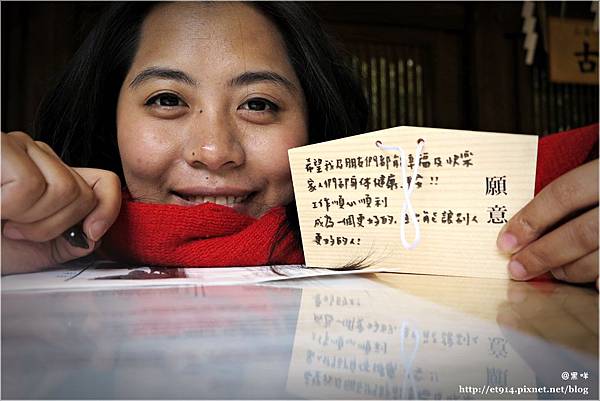 希望我及朋友們都能幸福及快樂
家人們都身体健康、平安!!
工作順心順利
成為一個更好的、且能讓別人
更好的人!
願意
古
@黑咩
http://et914.pixnet.net/blog